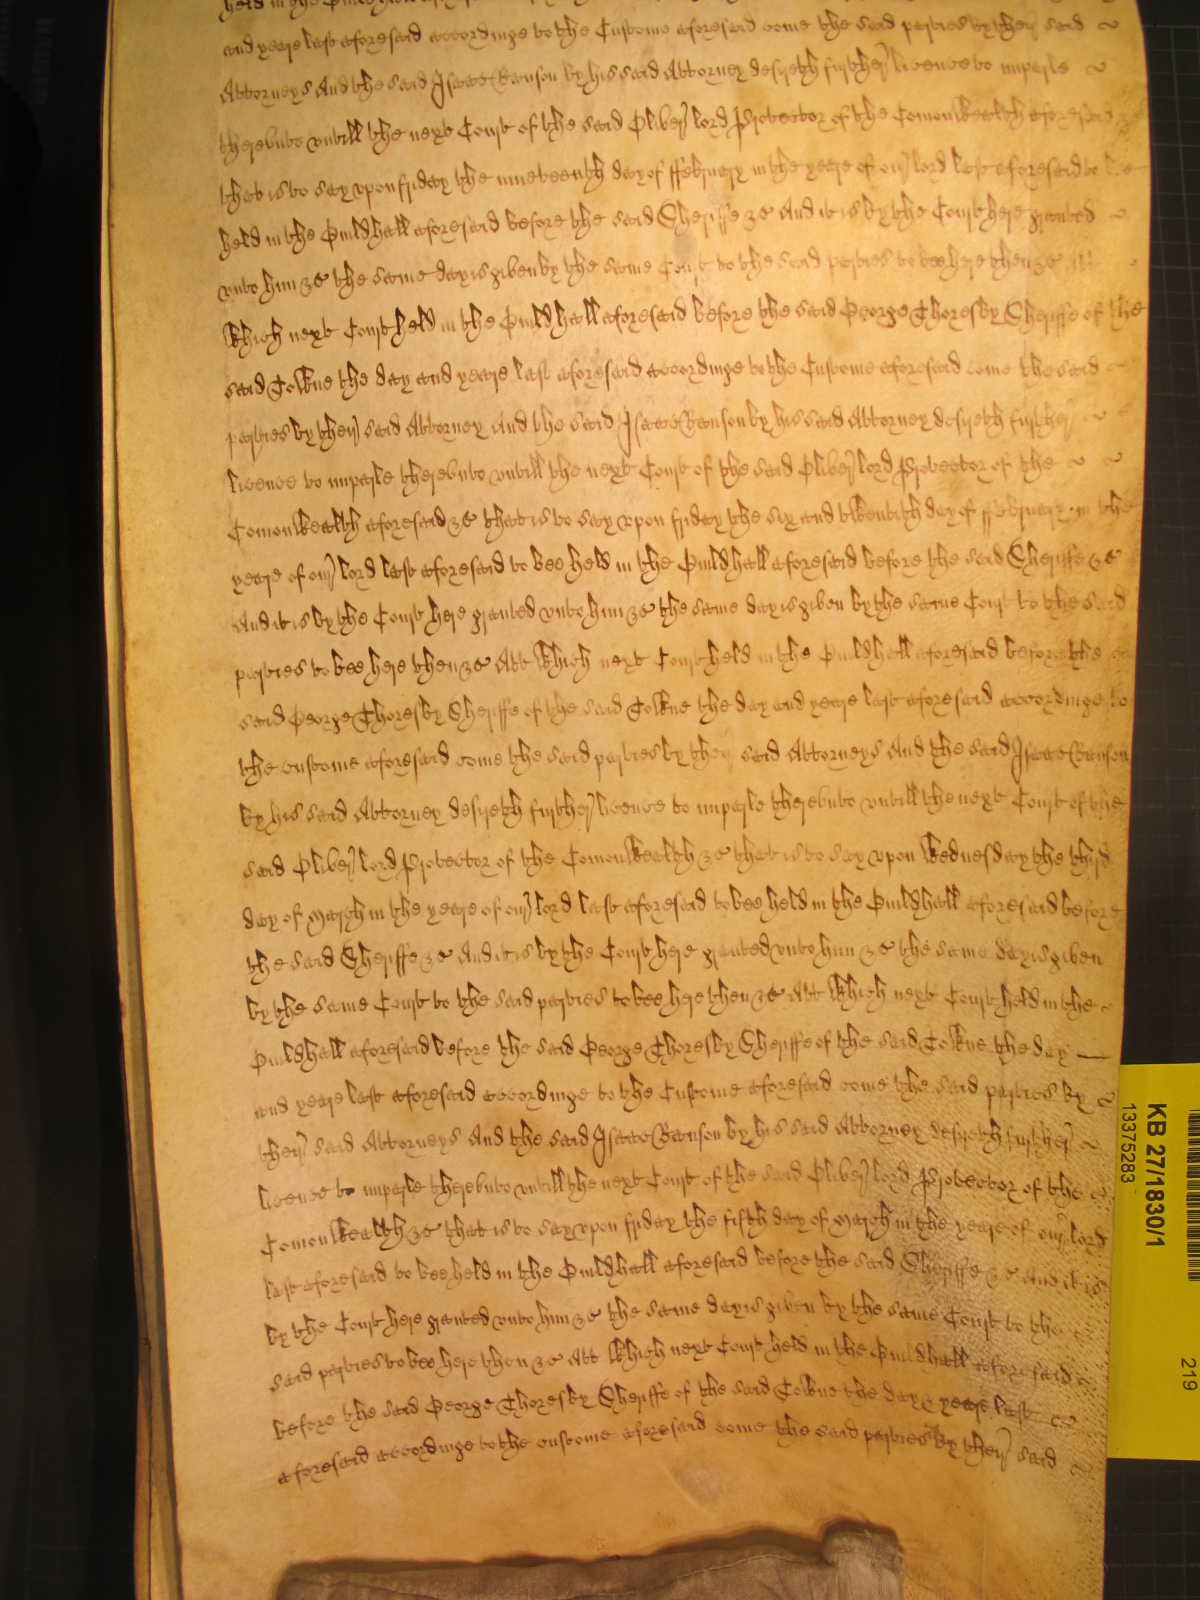 held in the Guildhall
and yeare last aforesaid accordinge to the Custome aforesaid come the said parties by their said
Attorneys And the said Isaac Rawson by his said Attorney desyreth further licence to imparle
thereunto untill the next Court of the said Oliver lord Protector of the Comonwealth aforesaid &c
that is to say upon fryday the nineteenth day of ffebruary in the yeare of our lord last aforesaid to be
held in the Guildhall aforesaid before the said Sheriffe &c And it is by the Court here graunted
unto him &c the same day is given by the same Court to the said parties to bee here then &c Att
Which next Court held in the Guildhall aforesaid before the said George Thoresby Sheriffe of the
said Towne the day and yeare last aforesaid accordinge to the Custome aforesaid come the said
parties by their said Attorney And the said Isaac Rawson by his said Attorney desyreth further
licence to imparle thereunto untill the next Court of the said Oliver lord Protector of the
Comonwealth aforesaid &c that is to say upon fryday the six and twentith day of ffebruary in the
yeare of our lord last aforesaid to bee held in the Guildhall aforesaid before the said Sheriffe &c
And it is by the Court here graunted unto him &c the same day is given by the same Court to the said
parties to bee here then &c Att Which next Court held in the Guildhall aforesaid before the
said George Thoresby Sheriffe of the said Towne the day and yeare last aforesaid accordinge to
the custome aforesaid come the said parties by their said Attorneys And the said Isaac Rawson
by his said Attorney desyreth further licence to imparle thereunto untill the next Court of the
said Oliver lord Protector of the Comonwealth &c that is to say upon Wednesday the third
day of March in the yeare of our lord last aforesaid to bee held in the Guildhall aforesaid before
the said Sheriffe &c And it is by the Court here graunted unto him &c the same day is given
by the same Court to the said parties to bee here then &c Att Which next Court held in the
Guildhall aforesaid before the said George Thoresby Sheriffe of the said Towne the day
and yeare last aforesaid accordinge to the Custome aforesaid come the said parties by
their said Attorneys And the said Isaac Rawson by his said Attorney desyreth further
licence to imparle thereunto untill the next Court of the said Oliver lord Protector of the
Comonwealth &c that is to say upon fryday the fifth day of March in the yeare of our lord
last aforesaid to bee held in the Guildhall aforesaid before the said Sheriffe &c And it is
by the Court here graunted unto him &c the same day is given by the same Court to the
said parties to bee here then &c Att Which next Court held in the Guildhall aforesaid
before the said George Thoresby Sheriffe of the said Towne the day & yeare last
aforesaid accordinge to the custome aforesaid come the said parties by their said
KB 27/1830/1
13375283
219